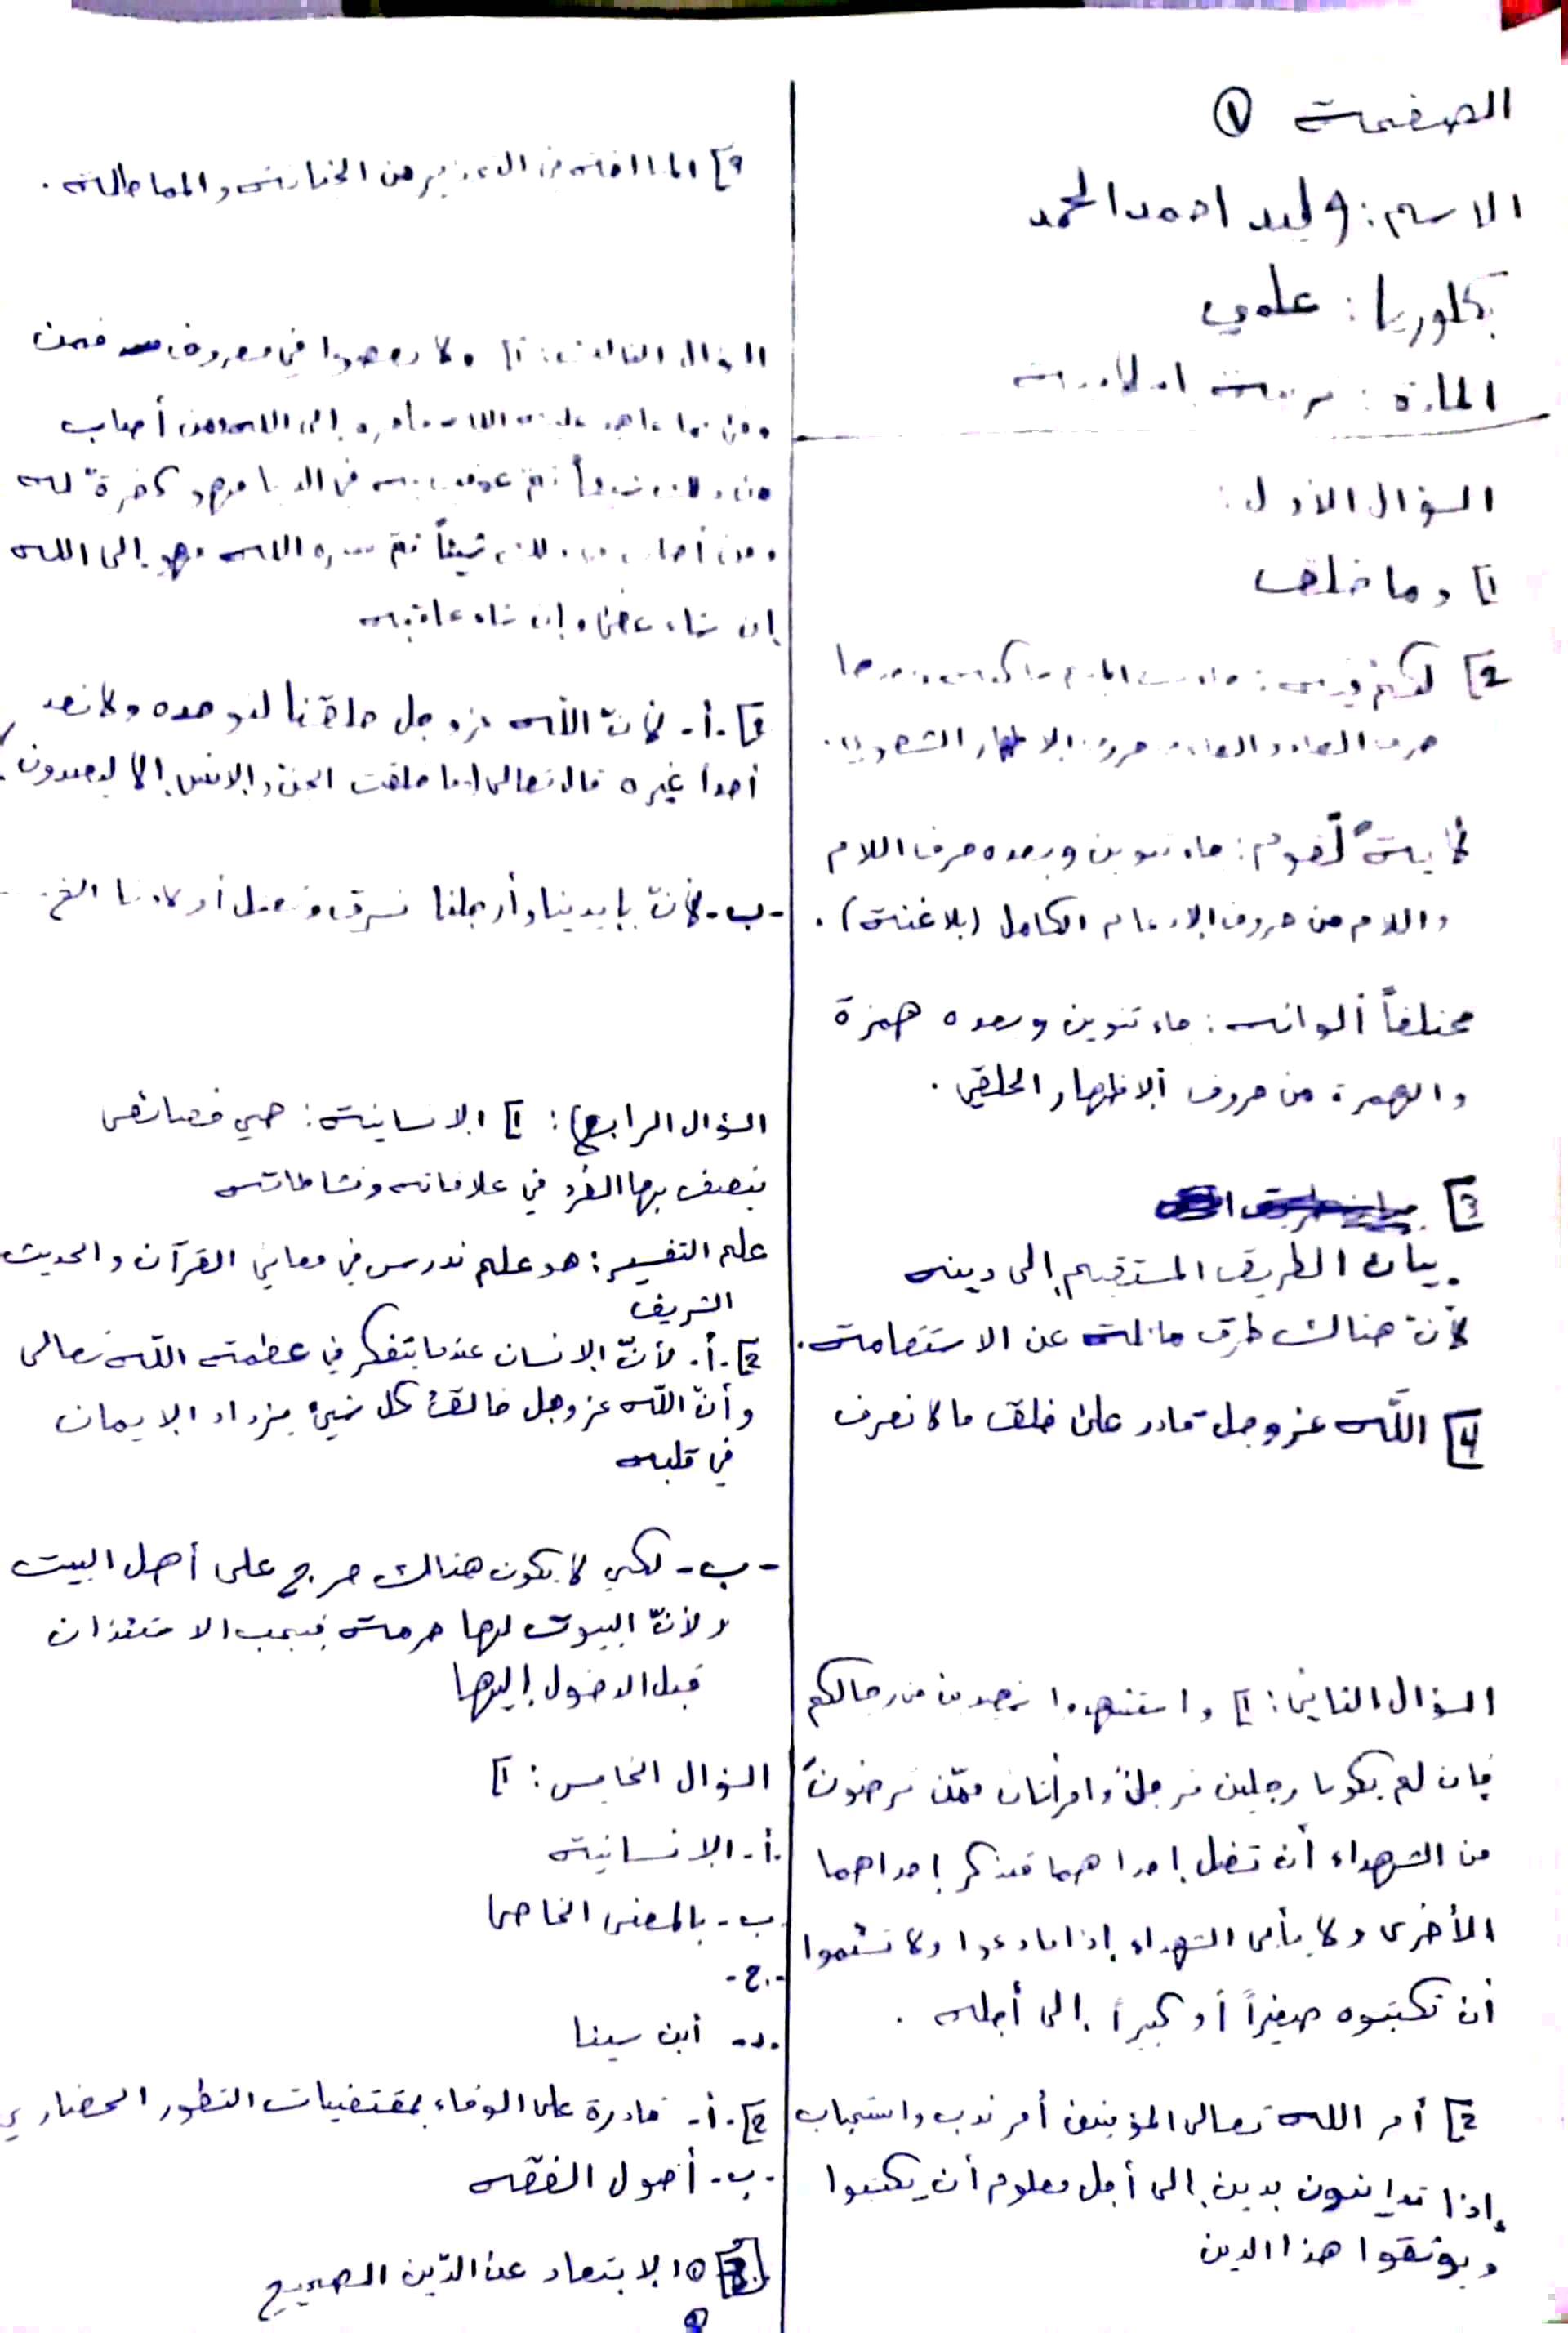 الصفحة ①
الاسم: وليد احمد الحمد
بكلوريا: علمي
المادة: تربية اسلامية
السؤال الأول:
1] وما خلف
2] لكم فيه: جاءت الميم ساكنة وبعدها
حرف الفاء والفاء حروف الإظهار الشفوي.
لآيةً لّقوم: جاء تنوين وبعده حرف اللام
واللام من حروف الإدغام الكامل (بلا غنة).
مختلفاً ألوانه: جاء تنوين وبعده همزة
والهمزة من حروف الإظهار الحلقي.
3]
بيان الطريق المستقيم إلى دينه
لأن هناك طرق مائلة عن الاستقامة.
4] اللّه عزوجل قادر على خلق ما لا نعرف
السؤال الثاني: 1] واستشهدوا شهدين من رجالكم
فإن لم يكونا رجلين فرجلٌ وامرأتان ممّن ترضون
من الشهداء أن تضل إحداهما فتذكر إحداهما
الأخرى ولا يأبى الشهداء إذا ما دعوا ولا تسئموا
أن تكتبوه صغيراً أو كبيراً إلى أجله.
2] أمر الله تعالى المؤمنين أمر ندب واستحباب
إذا تداينون بدين إلى أجل معلوم أن يكتبوا
ويوثقوا هذا الدين
من الخيانة والمماطلة.
السؤال الثالث: 1] ولا تعصوا في معروف فمن
وفى بما عاهد عليه الله فأجره إلى الله ومن أصاب
من ذلك شيئاً ثم عوقب به في الدنيا فهو كفرة له
ومن أصاب من ذلك شيئاً ثم ستره الله فهو إلى الله
إن شاء عفى وإن شاء عاقبه
2]. أ- لأنّ اللّه عزوجل خلقنا لنوحده ولا نعبد
أحداً غيره قال تعالى وما خلقت الجن والإنس إلا ليعبدون
-ب- لأنّ بأيدينا وأرجلنا نسرق ونقتل أولادنا الخ.
السؤال الرابع: 1] الانسانية: هي خصائص
يتصف بها الفرد في علاقاته ونشاطاته
علم التفسير: هو علم ندرس في معاني القرآن والحديث
الشريف
2]. أ. لأنّ الإنسان عندما يتفكر في عظمة اللّه تعالى
وأنّ اللّه عزوجل خالق كل شيء يزداد الإيمان
في قلبه
-ب- لكي لا يكون هناك حرج على أهل البيت
ولأنّ البيوت لها حرمة فيجب الاستئذان
قبل الدخول إليها
السؤال الخامس: 1]
.أ. الإنسانية
.ب- بالمعنى الخاص
-ج-
.د- أبن سينا
2]. أ- قادرة على الوفاء بمقتضيات التطور الحضاري
-ب- أصول الفقه
3] ① الابتعاد عن الدّين الصحيح